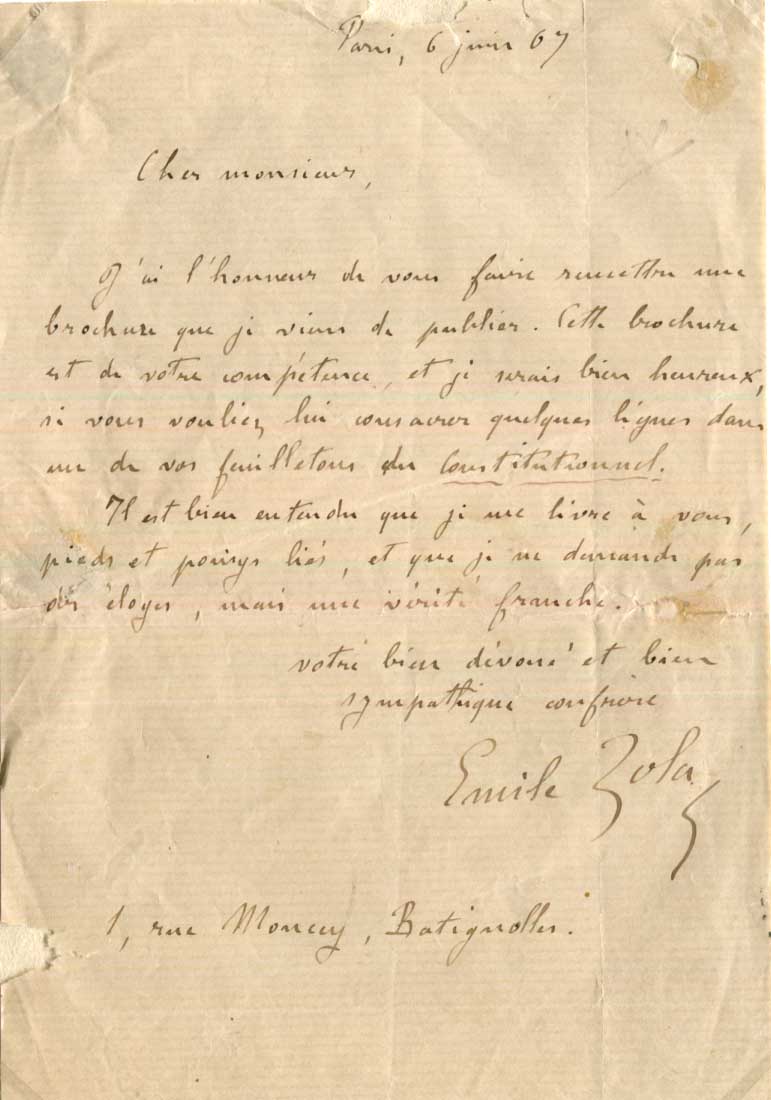 Paris, 6 juin 67
Cher monsieur,
J'ai l'honneur de vous faire remettre une
brochure que je viens de publier. Cette brochure
est de votre compétence, et je serais bien heureux,
si vous vouliez lui consacrer quelques lignes dans
un de vos feuilletons du Constitutionnel.
Il est bien entendu que je me livre à vous,
pieds et poings liés, et que je ne demande pas
des éloges, mais une vérité franche.
votre bien dévoué et bien
sympathique confrère
Emile Zola
1, rue Moncey, Batignolles.